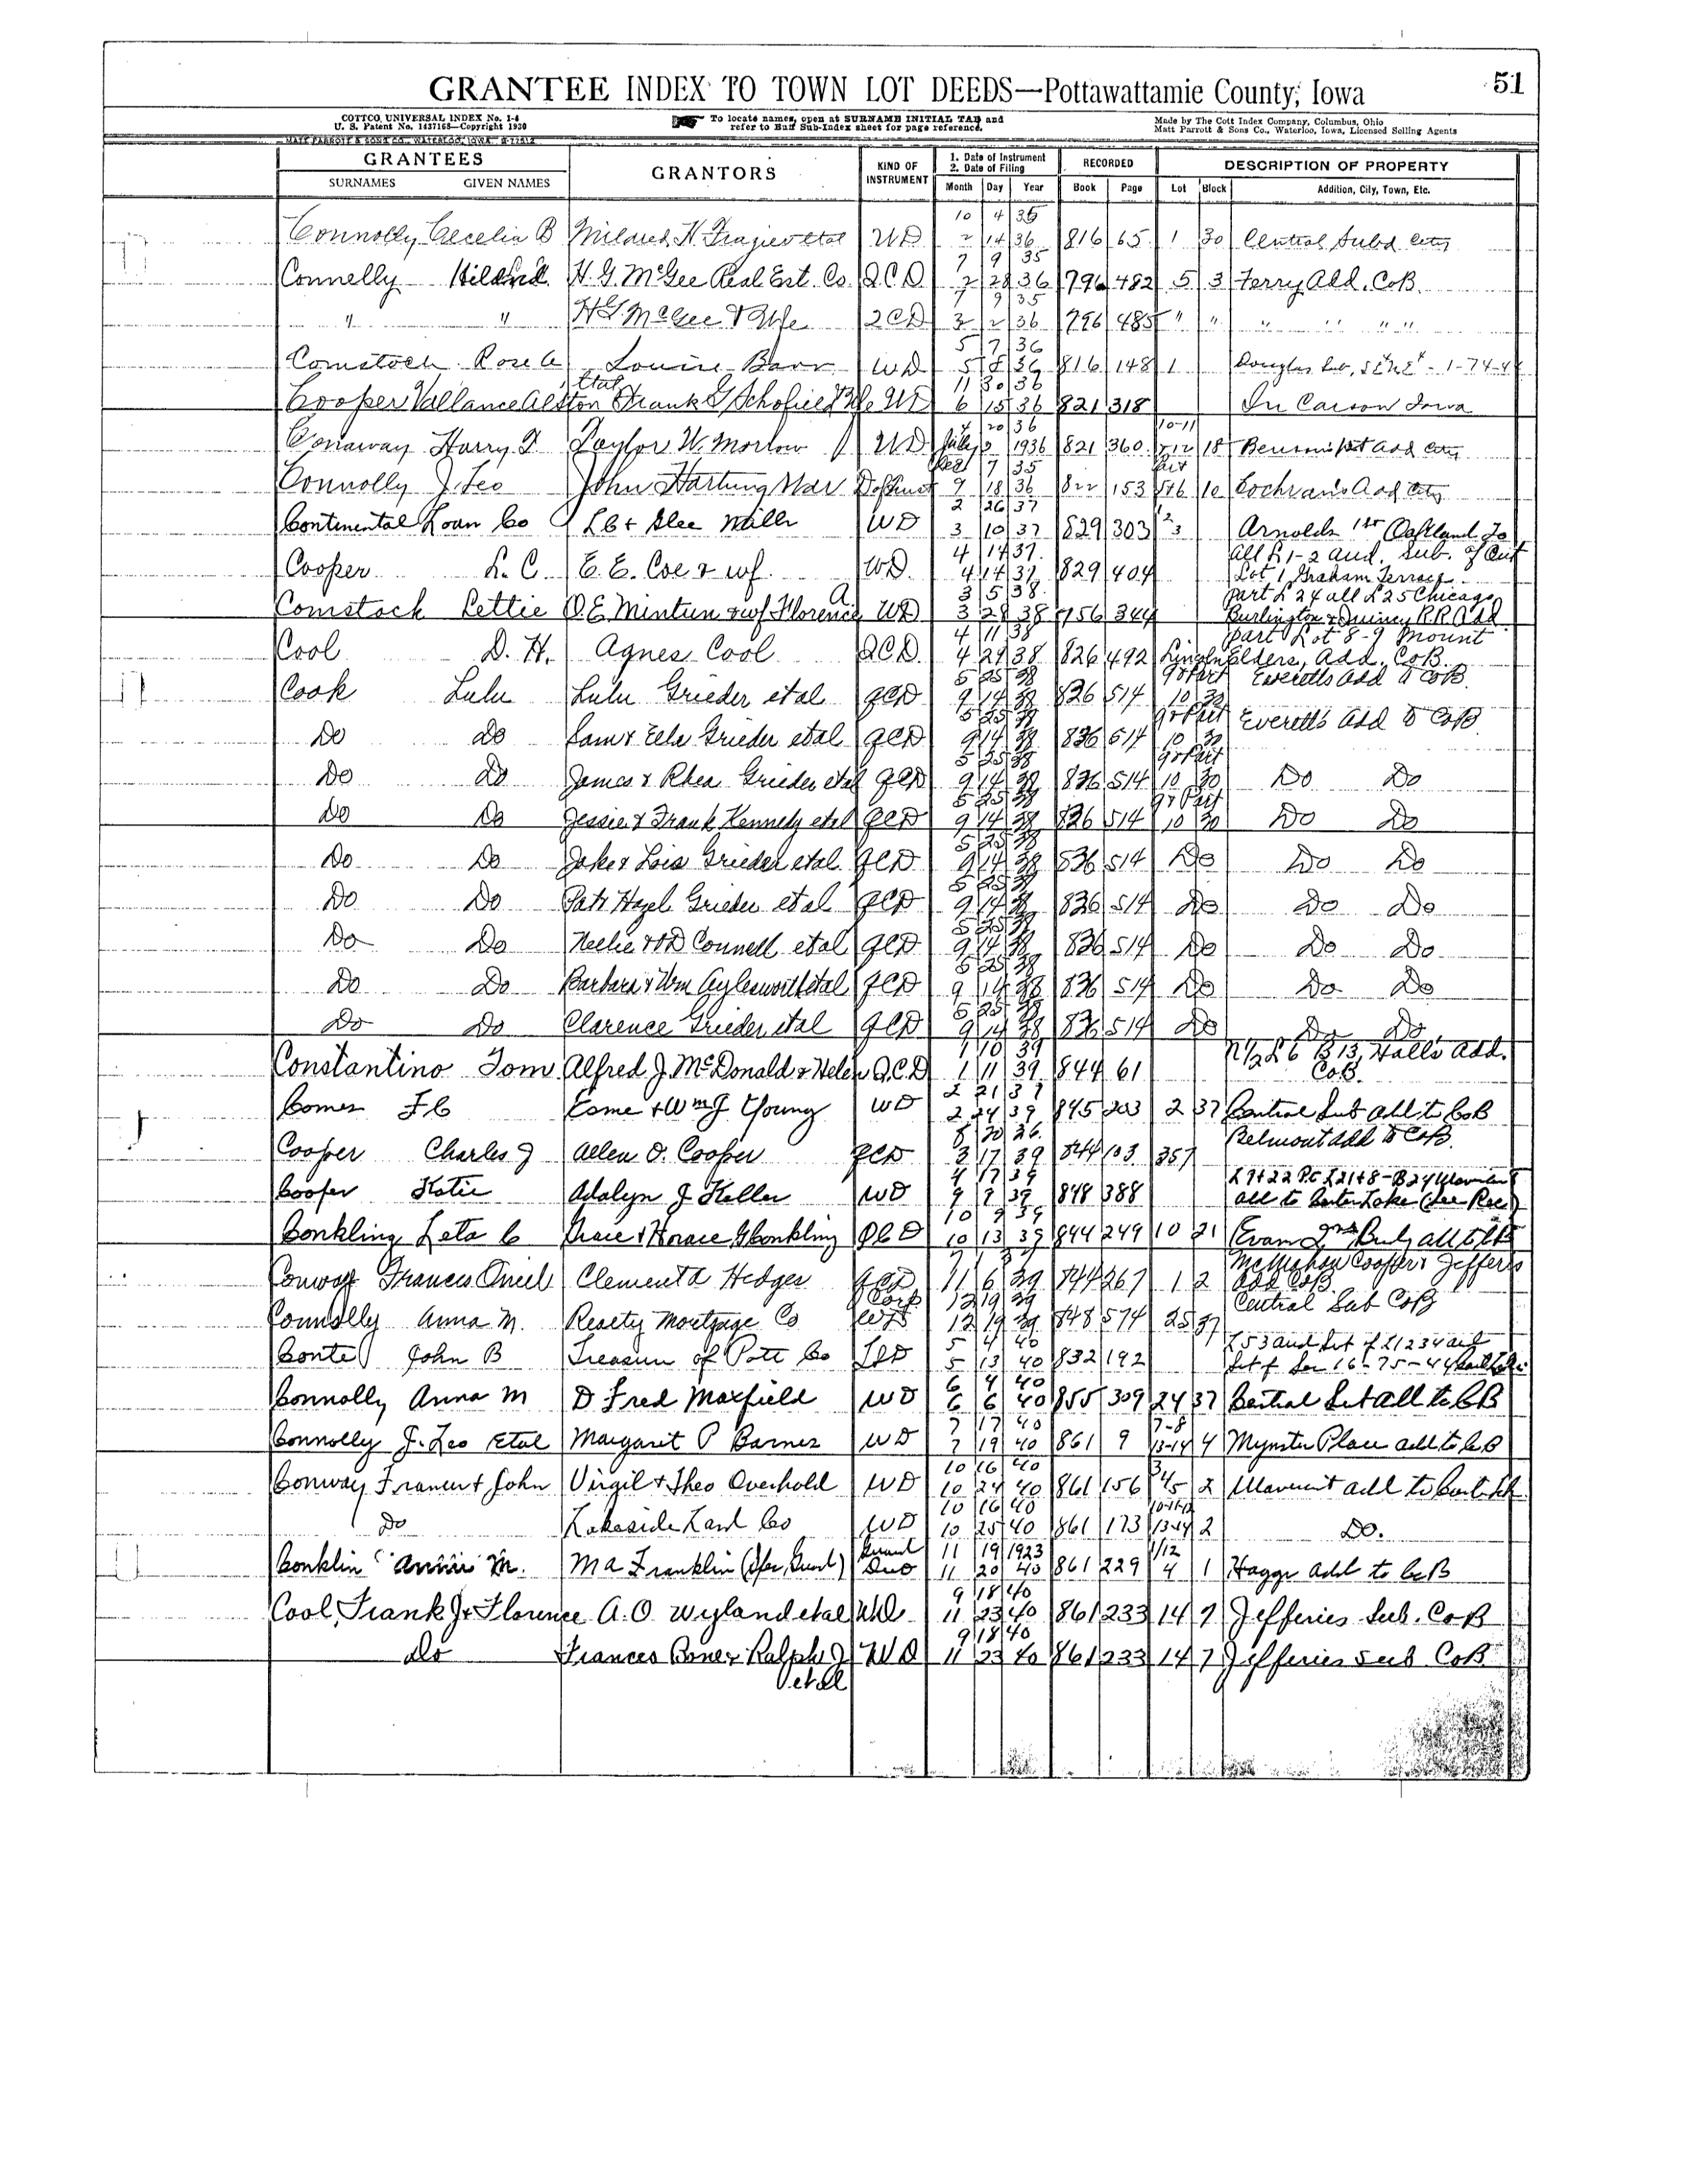 51
GRANTEE INDEX TO TOWN LOT DEEDS—Pottawattamie County, Iowa
COTTCO UNIVERSAL INDEX No. 1-4
U. S. Patent No. 1437165—Copyright 1930
To locate names, open at SURNAME INITIAL TAB and
refer to Buff Sub-Index sheet for page reference.
Made by The Cott Index Company, Columbus, Ohio
Matt Parrott & Sons Co., Waterloo, Iowa, Licensed Selling Agents
GRANTEES GRANTORS KIND OF INSTRUMENT 1. Date of Instrument 2. Date of Filing RECORDED DESCRIPTION OF PROPERTY
SURNAMES GIVEN NAMES Month Day Year Book Page Lot Block Addition, City, Town, Etc.
10 4 35
Connolly Cecelia B Mildred H. Frazier etal WD 2 14 36 816 65 1 30 Central Subd City
7 9 35
Connelly H. G. McGee Real Est. Co. QCD 2 28 36 796 482 5 3 Ferry Add. CoB.
7 9 35
" " H G McGee & Wife QCD 3 2 36 796 485 " " " " " "
5 7 36
Comstock Rose A Louise Barr WD 5 8 36 816 148 1
etal 11 30 36
Cooper Vallance Alston Frank G Schofield & Wife WD 6 15 36 821 318 In Carson Iowa
20 36 10-11
Conaway Harry F. Taylor W. Morrow WD July 2 1936 821 360 12 18 Add City
7 35
Connolly J. Leo John Hartung 9 18 36 822 153 10 Cochran's Add City
2 26 37
Continental Loan Co L C & Miller WD 3 10 37 829 303 2 3 Arnolds 1st Oakland Ia
4 14 37. All L 1-2 and Sub. of Out
Cooper L. C. E. E. Coe & wf. WD 4 14 37 829 404 Lot 1 Graham Terrace
3 5 38. part L 24 all L 25 Chicago
Comstock Lettie O. E. Mintun & wf Florence A WD 3 28 38 756 344 Burlington & Quincy R.R. Add
4 11 38 part Lot 8-9 Mount
Cool D. H. Agnes Cool QCD 4 29 38 826 492 Lincoln Elders, Add. CoB.
5 25 38 9 & Part Everetts Add to CoB
Cook Lulu Lulu Grieder etal QCD 9 14 38 836 514 10 30
5 25 38 9 & Part Everetts Add to CoB
Do Do Sam & Grieder etal QCD 9 14 38 836 514 10 30
5 25 38 9 & Part
Do Do James & Rhea Grieder etal QCD 9 14 38 836 514 10 30 Do Do
5 25 38 9 & Part
Do Do Jessie & Frank Kennedy etal QCD 9 14 38 836 514 10 30 Do Do
5 25 38
Do Do Jake & Lois Grieder etal QCD 9 14 38 836 514 Do Do Do
5 25 38
Do Do Pat & Hazel Grieder etal QCD 9 14 38 836 514 Do Do Do
5 25 38
Do Do Nellie & Connell etal QCD 9 14 38 836 514 Do Do Do
5 25 38
Do Do Barbara & Wm Aylesworth etal QCD 9 14 38 836 514 Do Do Do
5 25 38
Do Do Clarence Grieder etal QCD 9 14 38 836 514 Do Do Do
1 10 39 N 1/2 L 6 B 13, Halls Add.
Constantino Tom Alfred J. McDonald & Helen Q.C.D 1 11 39 844 61 CoB.
2 21 39
Comer F C Esme & Wm J Young WD 2 24 39 845 203 2 37 Central Sub Add to CoB
8 30 26. Belmont Add to CoB.
Cooper Charles J Allen O. Cooper QCD 3 17 39 844 103 357
4 17 39
Cooper Katie Adalyn J Keller WD 9 9 39 848 388 Add to Carter Lake (See Rec)
10 9 39
Conkling Leta C Grace & Horace G Conkling QCD 10 13 39 844 249 10 21 Evans 2nd Add to CB
McMahon Cooper & Jefferis
Conway Frances Oneil Clement A Hedges QCD 11 6 39 844 267 1 2 Add CoB.
Corp 12 19 39 Central Sub CoB
Connolly Anna M. Realty Mortgage Co WD 12 19 39 848 574 25 37
5 4 40
Conte John B Treasurer of Pott Co 5 13 40 832 192
6 4 40
Connolly Anna M D Fred Maxfield WD 6 6 40 855 309 24 37 Central Sub Add to CB
7 17 40 7-8
Connolly J. Leo Etal Margaret P Barnes WD 7 19 40 861 9 13-14 4 Mynster Place Add to CoB
10 16 40 3
Conway Francis & John Virgil & Theo Overhold WD 10 24 40 861 156 45 2
10 16 40
Do Lakeside Land Co WD 10 25 40 861 173 13-14 2 Do.
11 19 1923
Conklin Annie M. M A Franklin 11 20 40 861 229 4 1 Haggs Add to CoB
9 18 40
Cool, Frank J & Florence A. O. Wyland etal WD 11 23 40 861 233 14 7 Jefferies Sub. CoB
9 18 40
Do Frances Bone & Ralph J WD 11 23 40 861 233 14 7 Jefferies Sub CoB
etal